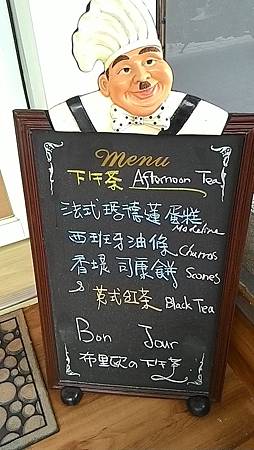 menu
下午茶 Afternoon Tea
法式瑪德蓮蛋糕
Madeline
西班牙油條 Churros
香堤司康餅 Scones
& 英式紅茶 Black Tea
Bon Jour
布里歐の下午茶